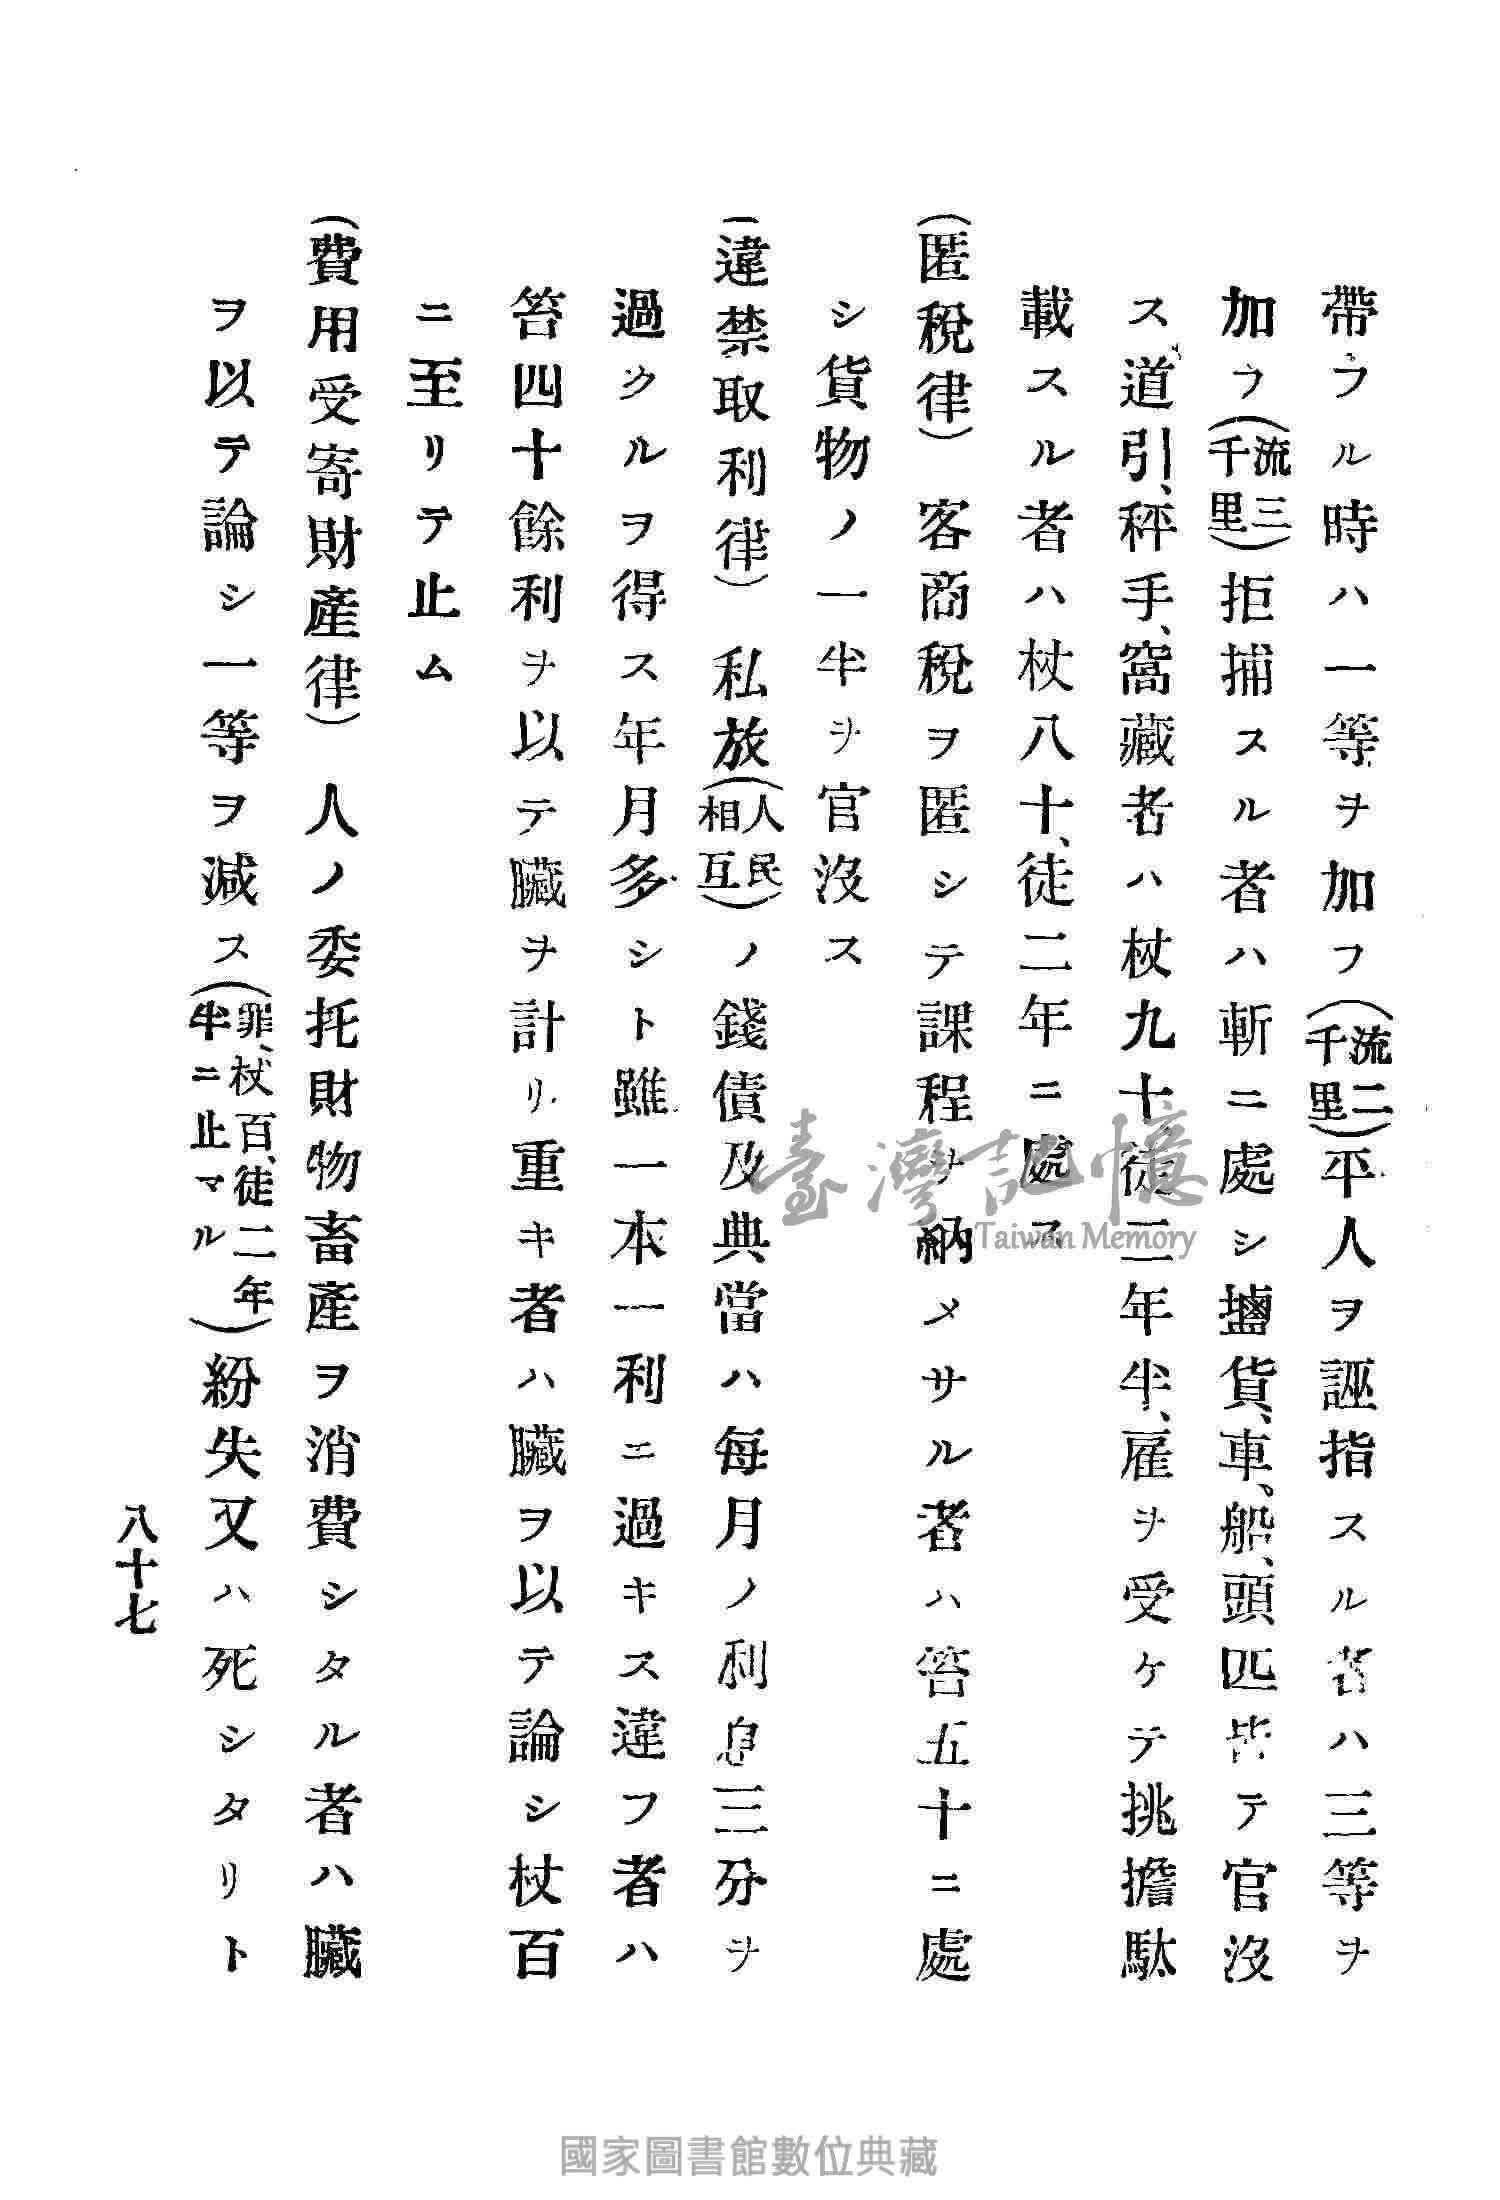 帶フル時ハ一等ヲ加フ(流二千里)平人ヲ誣指スル者ハ三等ヲ
加フ(流三千里)拒捕スル者ハ斬ニ處シ鹽貨、車、船、頭匹皆テ官沒
ス道引、秤手、窩藏者ハ杖九十、徒二年半、雇ヲ受ケテ挑擔駄
載スル者ハ杖八十、徒二年ニ處ス
(匿稅律) 客商稅ヲ匿シテ課程ヲ納メサル者ハ笞五十ニ處
シ貨物ノ一半ヲ官沒ス
(違禁取利律) 私放(人民相互)ノ錢債及典當ハ每月ノ利息三分ヲ
過クルヲ得ス年月多シト雖一本一利ニ過キス違フ者ハ
笞四十餘利ヲ以テ贓ヲ計リ重キ者ハ贓ヲ以テ論シ杖百
ニ至リテ止ム
(費用受寄財產律) 人ノ委托財物畜產ヲ消費シタル者ハ贓
ヲ以テ論シ一等ヲ減ス(罪、杖百、徒二年半ニ止マル)紛失又ハ死シタリト
八十七
臺灣記憶
Taiwan Memory
國家圖書館數位典藏